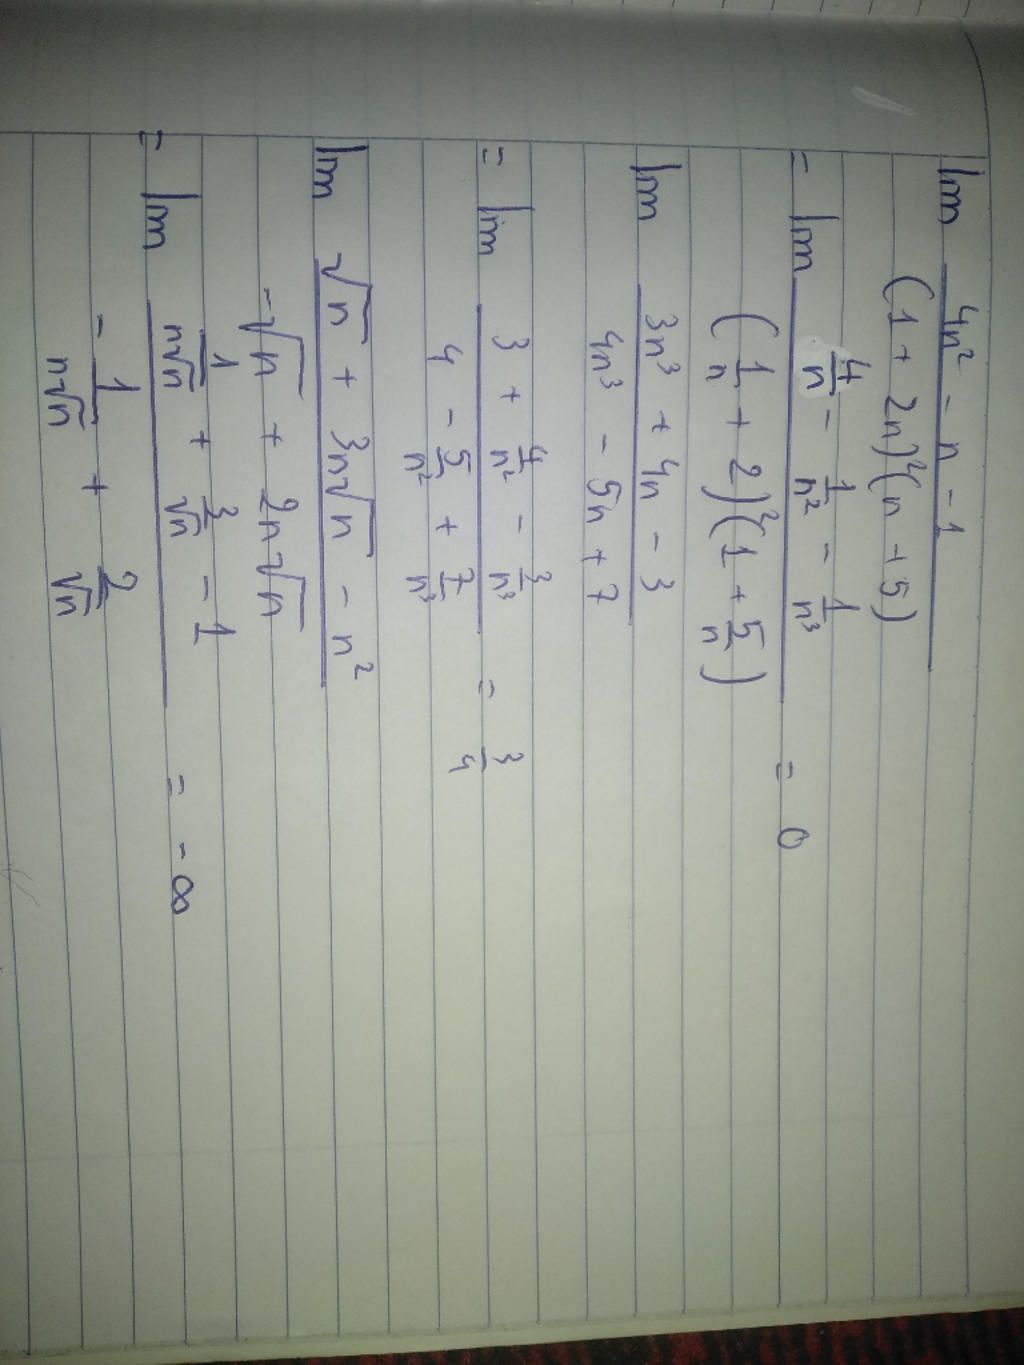 lim (4n² - n - 1) / ((1 + 2n)²(n + 5))
= lim (4/n - 1/n² - 1/n³) / ((1/n + 2)²(1 + 5/n)) = 0
lim (3n³ + 4n - 3) / (4n³ - 5n + 7)
= lim (3 + 4/n² - 3/n³) / (4 - 5/n² + 7/n³) = 3/4
lim (√n + 3n√n - n²) / (-√n + 2n√n)
= lim (1/(n√n) + 3/√n - 1) / (-1/(n√n) + 2/√n) = -∞